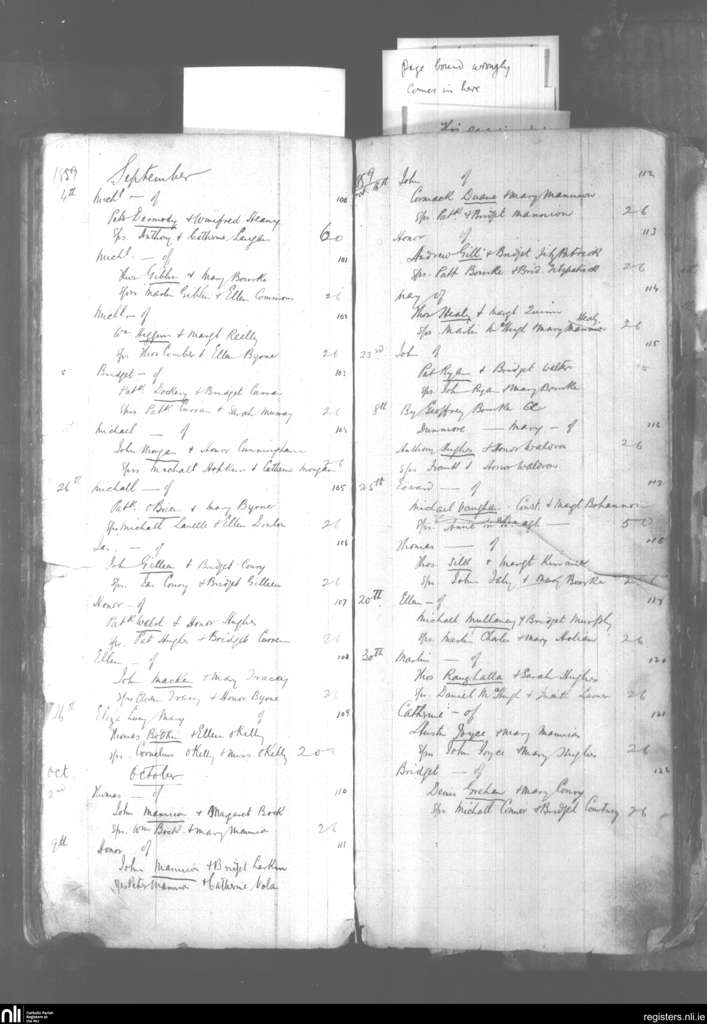 Page bound wrongly
comes in here
1859 September
4th Michl — of 100
Patk Dermody & Winefred Heany
Sps. Anthony & Catherine 60
Michl. — of 101
Thos Giblin & Mary Bourke
Spss Martin Giblin & Ellen Commons 26
Michl — of 102
Wm Higgins & Margt Reilly
Sps Thos Comber & Ellen Byrne 26
Bridget — of 103
Patk Dockery & Bridget Curran
Spss Patk Curran & Sarah Murray 26
Michael — of 104
John Morgan & Honor Cunningham
Spss Michall Hopkins & Catherine Morgan 26
26th Michall — of 105
Patk OBrien & Mary Byrne
Sps Michall Lavelle & Ellen Donlon 26
Jas. — of 106
John Gilleen & Bridget Conry
Sps. Jas Conry & Bridget Gilleen 26
Honor — of 107
Patk Walsh & Honor Hughes
Sps. Pat Hughes & Bridget Curren 26
Ellen — of 108
John Mackin & Mary Tracey
Sps Tracy & Honor Byrne 26
26th Eliza Lucy Mary of 109
Thomas Botkin & Ellen OKelly
Sps. Cornelius OKelly & Miss OKelly 20
Oct. October
2nd Thomas — of 110
John Mannion & Margaret Bock
Sps. Wm Bock & Mary Mannion 26
9th Honor of 111
John Mannion & Bridget Larkin
Sps Peter Mannion & Catherine
59
16th John of 112
Cormack Duane & Mary Mannion
Sps Patk & Bridget Mannion 26
Honor of 113
Andrew Gilli & Bridget FitzPatrick
Sps. Patt Bourke & Brid Fitzpatrick 26
Mary of 114
Thos Healy & Margt Quinn
Sps Martin McHugh & Mary Healy 26
23rd John of 115
Pat Ryan & Bridget Walsh
Sps. John Ryan & Mary Bourke
8th By Geoffrey Bourke CC
Dunmore — Mary — of 116
Anthony Hughes & Honor Waldron 26
Sps Frank & Honor Waldron
25th Edward — of 117
Michael Vaughan Const. & Margt Bohannon
Sps. 50
Thomas — of 118
Thos Silk & Margt
Sps John Daly & Mary Bourke
20th Ellen — of 119
Michall Mullaney & Bridget Murphy
Sps. Martin Charles & Mary 26
30th Martin — of 120
Thos Ranghalla & Sarah Hughes
Sps. Daniel McHugh & 26
Catherine — of 121
Austin Joyce & Mary Mannion
Sps John Joyce & Mary Hughes 26
Bridget — of 122
Denis Grehan & Mary Conry
Sps Michall Comer & Bridget Courtney 26
nli
Catholic Parish
Registers at
the NLI
registers.nli.ie